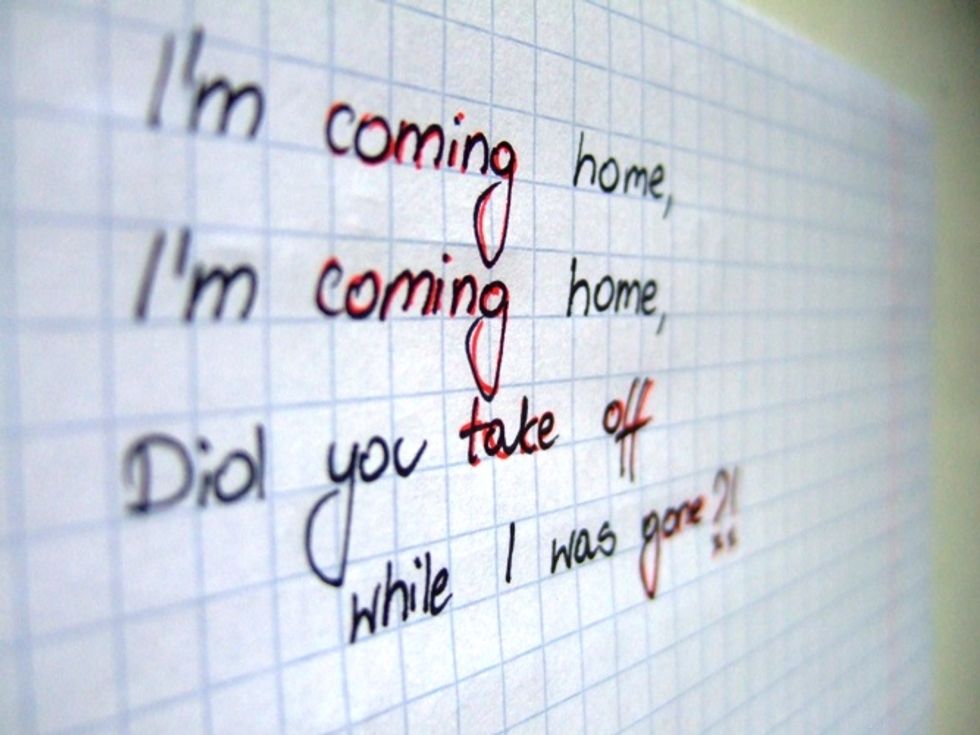 I'm coming home,
I'm coming home,
Did you take off
while I was gone?!